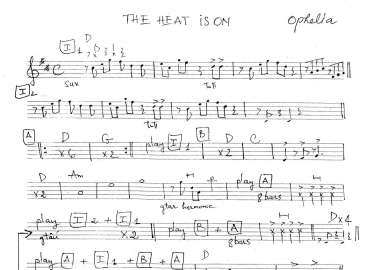 THE HEAT IS ON Ophelia
I 1 D
sax tutti
I 2
tutti
A D G play I 1 B D C
x 6 x 2 x 2
D Am play A
x 2 gtar harmonic 8 bars
play I 2 + I 1 play B + A D x 4
gtar x 2 8 bars
play A + I 1 + B + A D